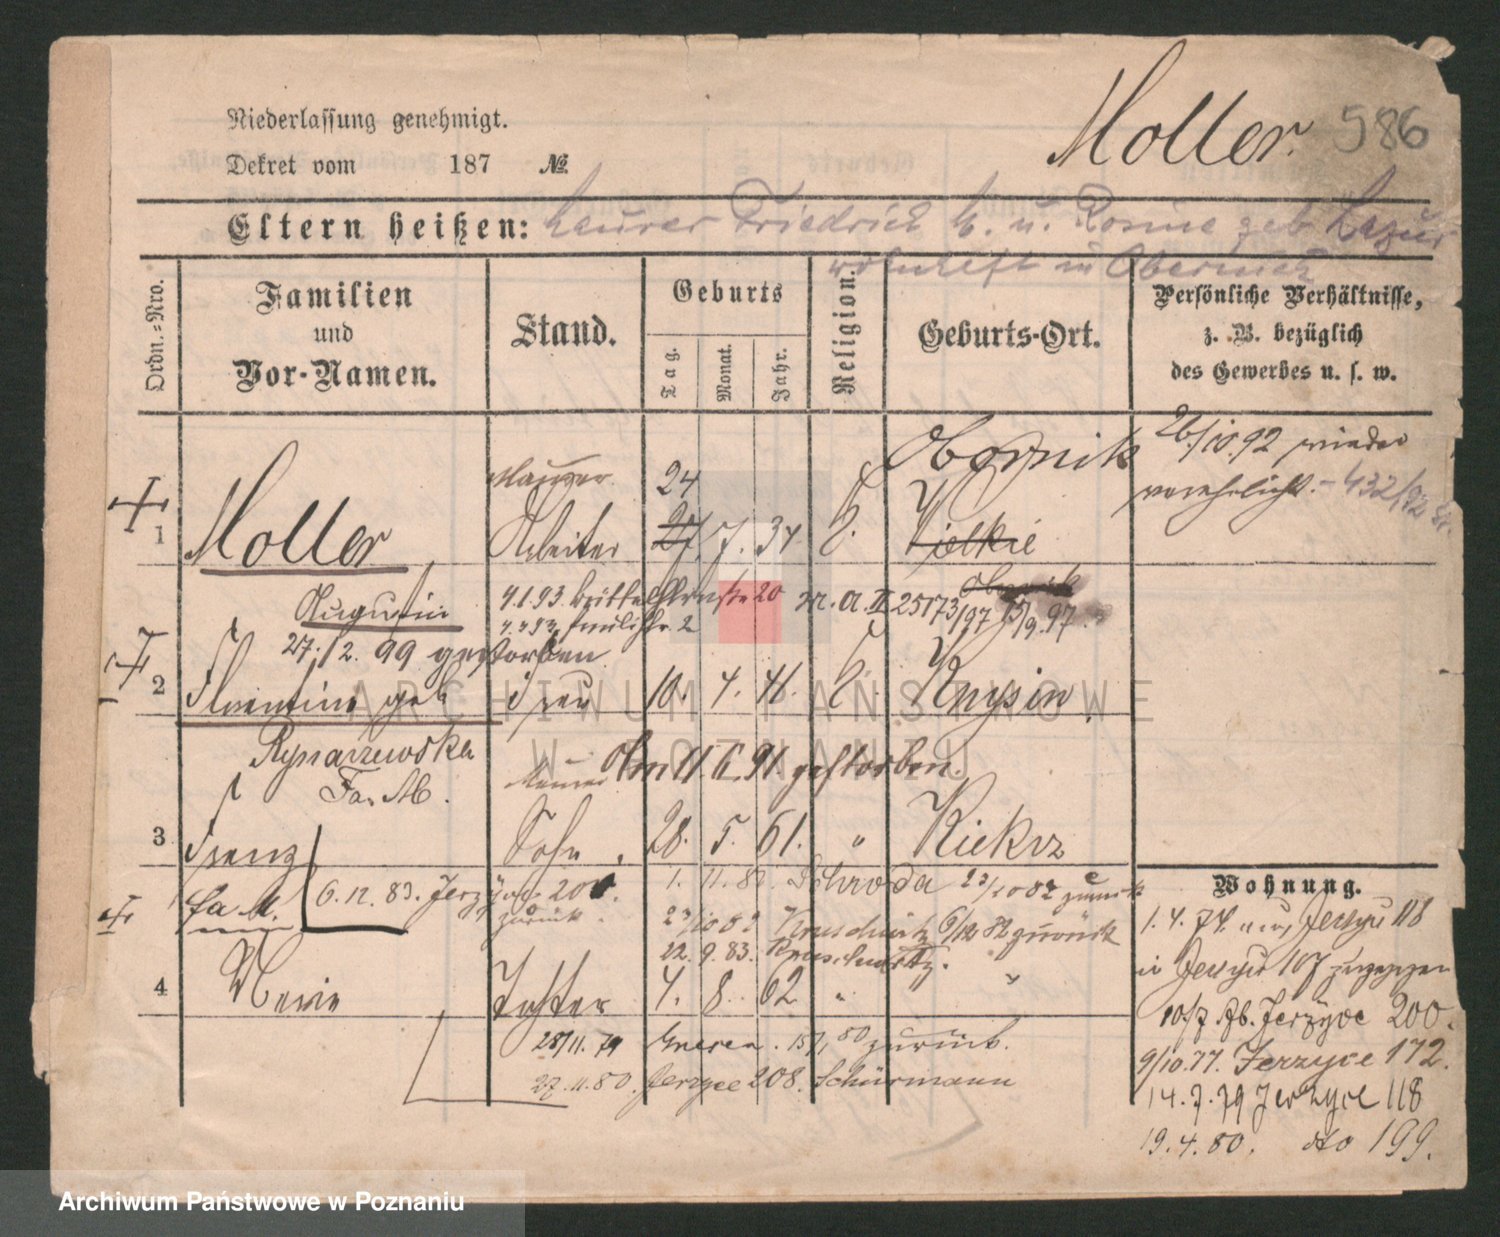 Moller. 586
Niederlassung genehmigt.
Dekret vom 187 №
Eltern heißen: Maurer Friedrich E. u. Rosine geb
wohnhaft in Obernick
Ordn.-Nro.
Familien
und
Vor-Namen.
Stand.
Geburts
Tag.
Monat.
Jahr.
Religion.
Geburts-Ort.
Persönliche Verhältnisse,
z. B. bezüglich
des Gewerbes u. s. w.
Obornik 26/10.92 wieder
verehelicht. - 432/92
Maurer. 24
1 Moller Arbeiter 27. 7. 34. E. Kielkie
Augustin 4.1.93. 20 M. A. II 25173/97 15/9.97.
4.4.93. 2
27. 12. 99 gestorben
2 Florentine geb Frau 10. 4. 41. E. Knysin
Rynarzewska Am 11. 6. 91. gestorben.
Fa. Ab. Maurer
3 Franz Sohn 28. 5. 61. " Kiekrz
6.12.83. Jerzyce 200. 1. 11. 82. Schroda 23/10 82 zurück
zurück. 6/12 82 zurück
22. 9. 83.
4 Marie Tochter 4. 8. 62 " "
28/11. 79 Gnesen. 15/1 80 zurück.
27. 11. 80. Jerzyce 208. Schürmann
Wohnung.
1. 4. 74. Jerzyce 118
in Jerzyce 107 zugezogen
10/7. 76. Jerzyce 200.
9/10.77. Jerzyce 172.
14. 7. 79 Jerzyce 118
19. 4. 80. dto 199.
ARCHIWUM PAŃSTWOWE
W POZNANIU
Archiwum Państwowe w Poznaniu